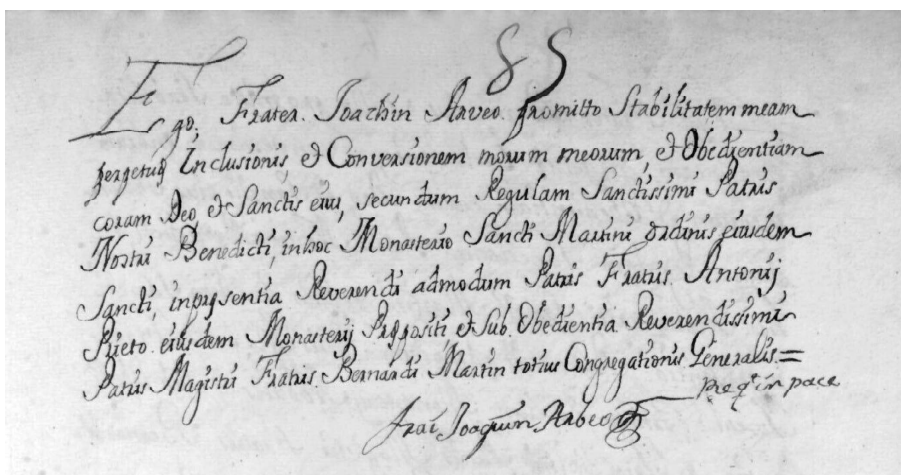 85
Ego, Frater. Joachin Arveo. promitto Stabilitatem meam
perpetuę Inclusionis, et Conversionem morum meorum, et Obedientiam
coram Deo, et Sanctis eius, secundum Regulam Sanctissimi Patris
Nostri Benedicti, in hoc Monasterio Sancti Martini ordinis eiusdem
Sancti, in pręsentia Reverendi admodum Patris Fratris. Antonij
Prieto. eiusdem Monasterij Prępositi, et sub Obedientia Reverendissimi
Patris Magistri Fratris. Bernardi Martin totius Congregationis Generalis.=
in pace
Frai Joaquin Arbeo